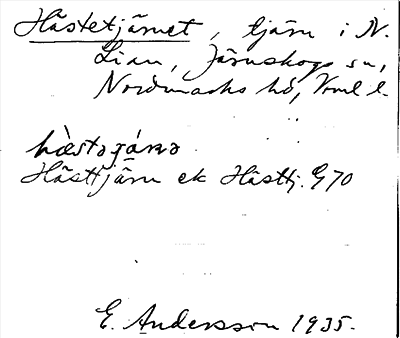 Hästetjärnet, tjärn i N.
Lian, Järnskogs sn,
Nordmarks hd, Vrml l.
hæ̀stəjá́ɳə
Hästtjärn ek Hästtj. G70
E. Andersson 1935.